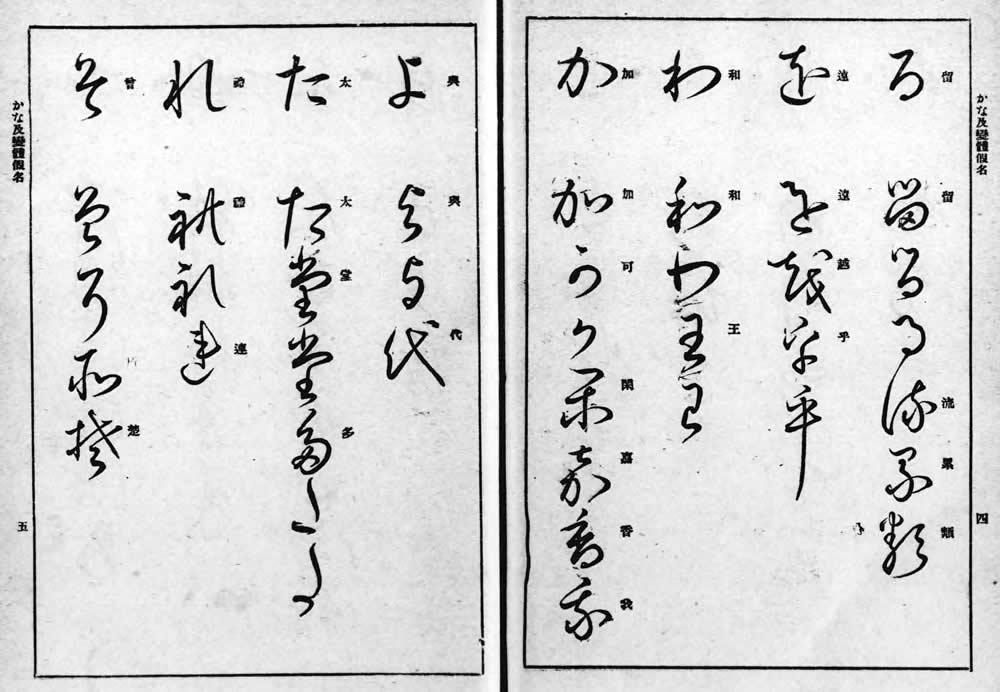 かな及變體假名
四
る 留
留 流 累 類
を 遠
遠 越 乎
わ 和
和 王
か 加
加 可 閑 嘉 香 我
よ 與
與 代
た 太
太 堂 多
れ 禮
禮 連
そ 曾
曾 所 楚
かな及變體假名
五